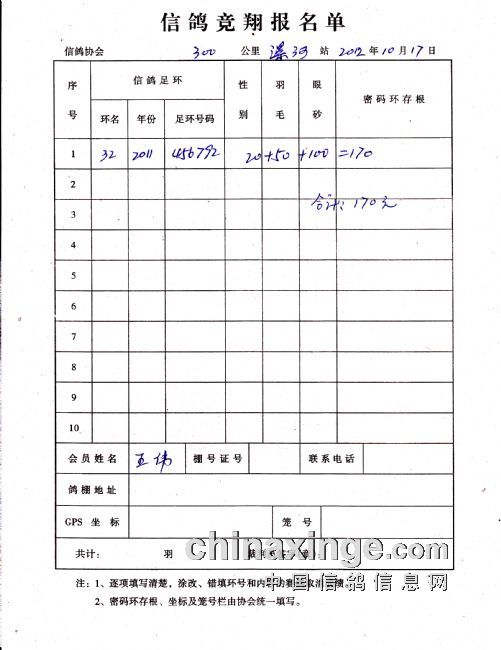 信鸽竞翔报名单
信鸽协会 300 公里 漯河 站 2012 年 10 月 17 日
序号 信鸽足环 性别 羽毛 眼砂 密码环存根
环名 年份 足环号码
1 32 2011 456792 20+50+100=170
2
合计: 170元
3
4
5
6
7
8
9
10
会员姓名 王伟 棚号证号 联系电话
鸽棚地址
GPS 坐标 笼号
共计: 羽
chinaxinge.com
中国信鸽信息网
注: 1、逐项填写清楚,涂改、错填环号和内
2、密码环存根、坐标及笼号栏由协会统一填写。